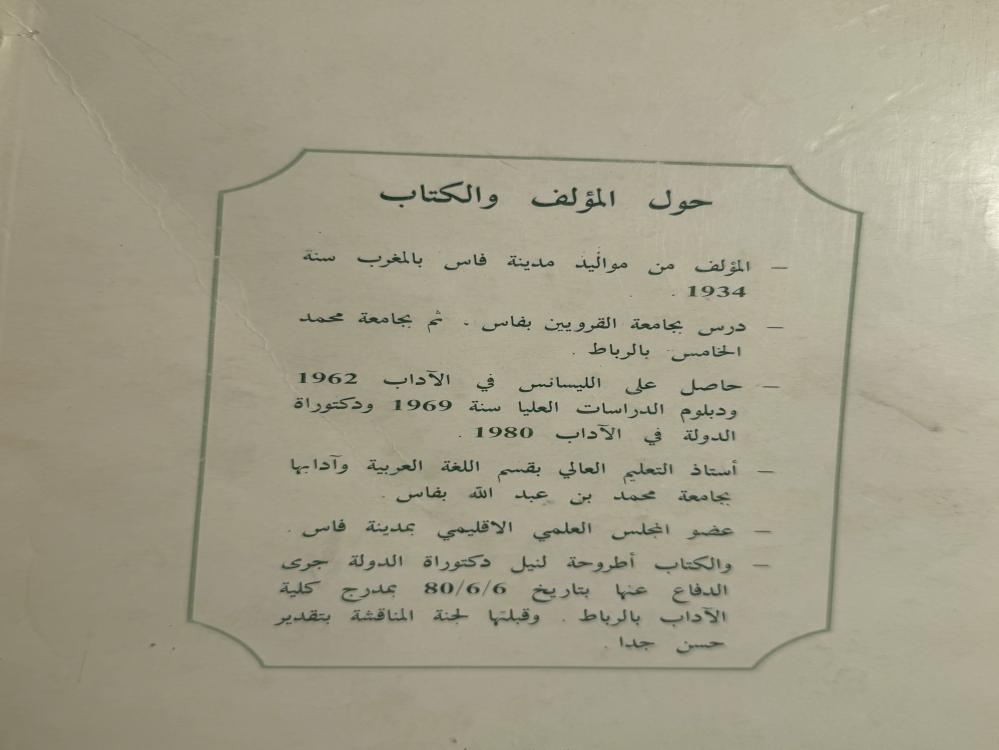 حول المؤلف والكتاب
— المؤلف من مواليد مدينة فاس بالمغرب سنة
1934 .
— درس بجامعة القرويين بفاس . ثم بجامعة محمد
الخامس بالرباط .
— حاصل على الليسانس في الآداب 1962
ودبلوم الدراسات العليا سنة 1969 ودكتوراة
الدولة في الآداب 1980 .
— أستاذ التعليم العالي بقسم اللغة العربية وآدابها
بجامعة محمد بن عبد الله بفاس .
— عضو المجلس العلمي الاقليمي بمدينة فاس .
— والكتاب أطروحة لنيل دكتوراة الدولة جرى
الدفاع عنها بتاريخ 80/6/6 بمدرج كلية
الآداب بالرباط . وقبلتها لجنة المناقشة بتقدير
حسن جدا .